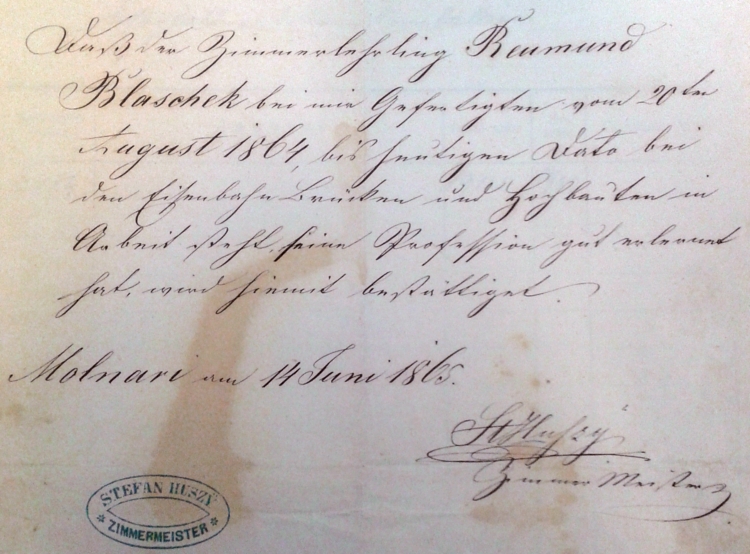 Daß der Zimmerlehrling Reumund
Blaschek bei mir Gefertigten vom 20ten
August 1864, bis heutigen Dato bei
den Eisenbahn Brücken und Hochbauten in
Arbeit steht seine Profession gut erlernet
hat, wird hiemit bestättiget.
Molnari am 14 Juni 1865.
St Huszy
Zimmer Meister
STEFAN HUSZY
ZIMMERMEISTER